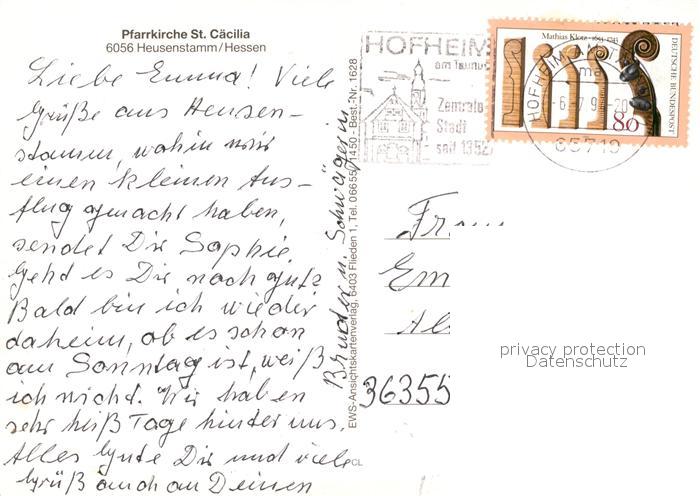 Pfarrkirche St. Cäcilia
6056 Heusenstamm/Hessen
Liebe Emma! Viele
Grüße aus Heusen-
stamm, wohin wir
einen kleinen Aus-
flug gemacht haben,
sendet Dir Sophie.
Gehd es Dir noch gut?
Bald bin ich wieder
daheim, ob es schon
am Sonntag ist, weiß
ich nicht. Wir haben
sehr heiß Tage hinter uns.
Alles Gute Dir und viele
Grüß auch an Deinen
Bruder u. Schwägerin
EWS-Ansichtskartenverlag, 6403 Flieden 1, Tel. 06655/1450 - Best.-Nr. 1628
CL
HOFHEIM
am Taunus
Zentrale
Stadt
seit 1352
HOFHEIM
65719
Mathias Klotz · 1653-1743
DEUTSCHE BUNDESPOST
80
Fr
Em
Al
36355
privacy protection
Datenschutz